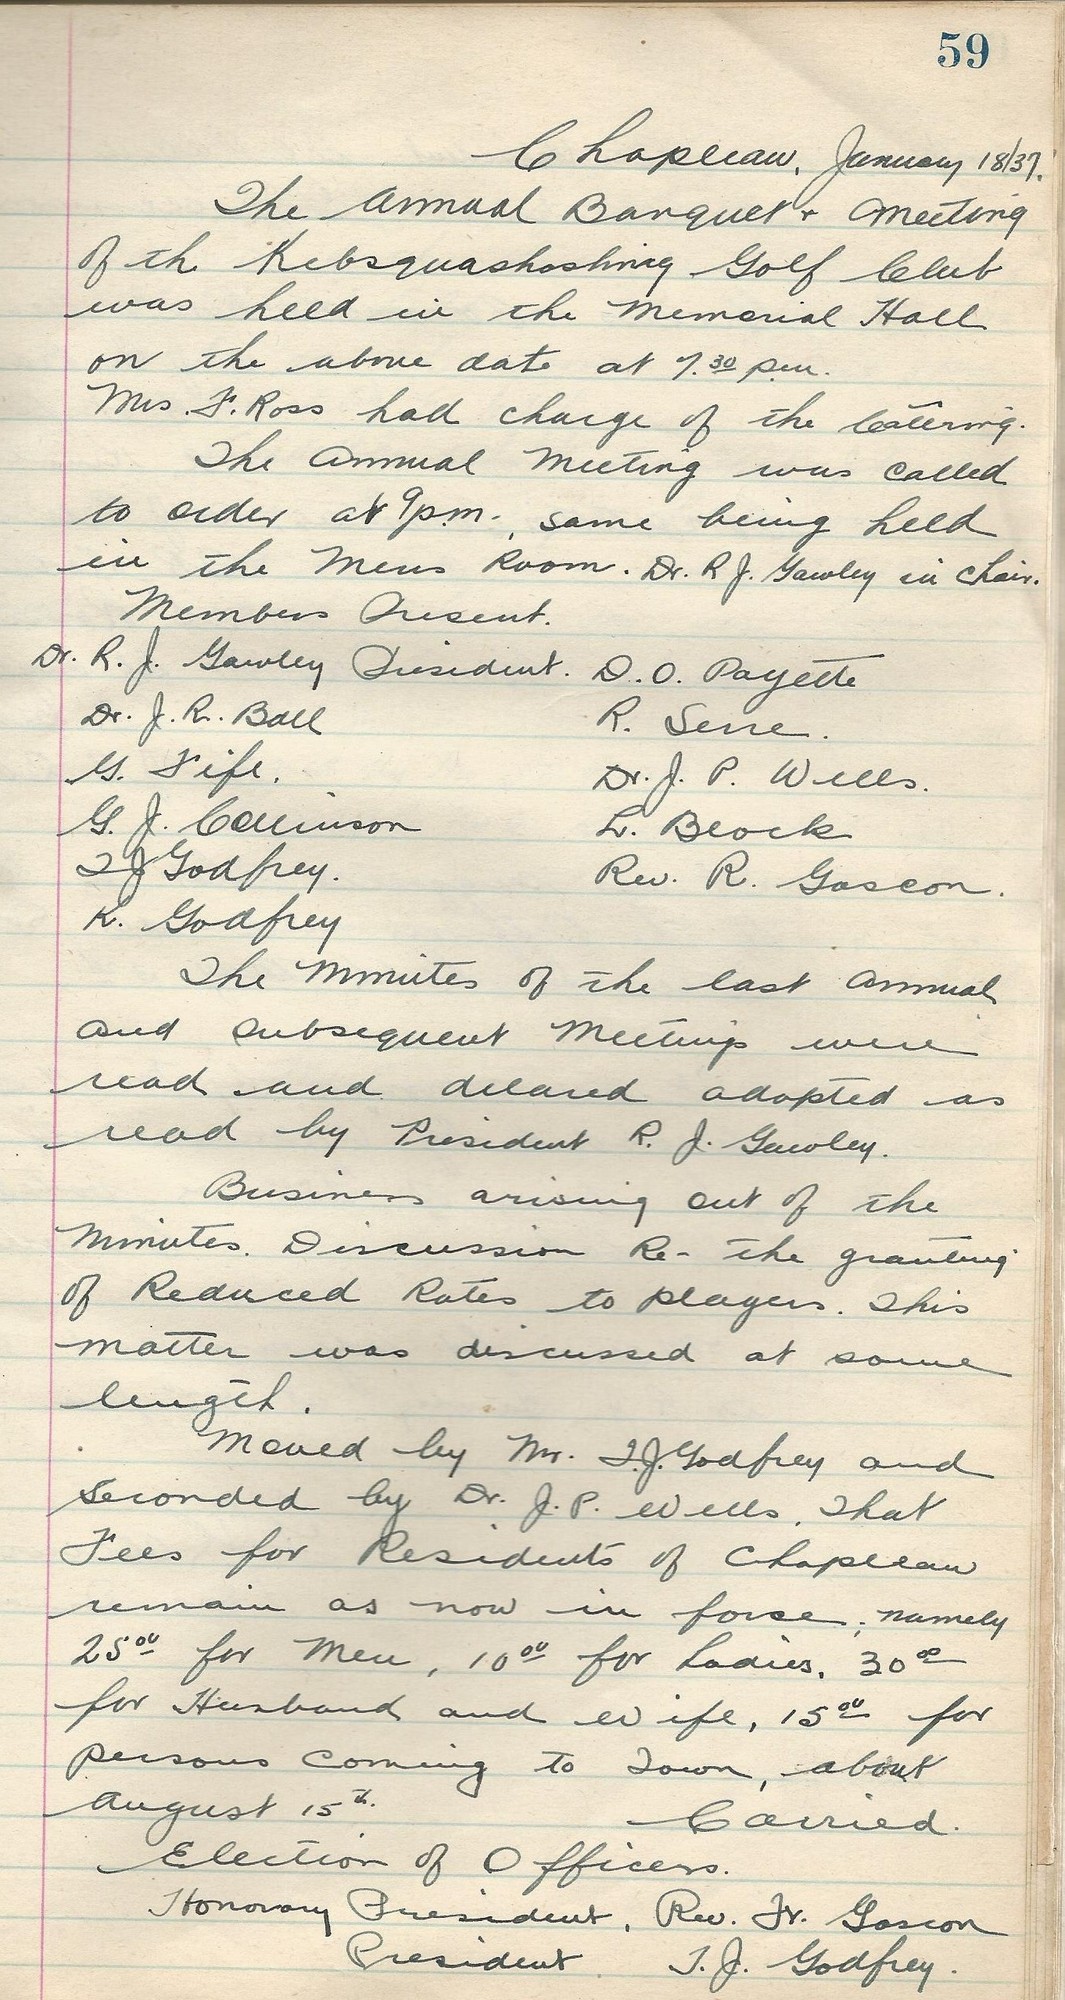 59
Chapleau, January 18/37.
The Annual Banquet + Meeting
of the Kebsquashoshing Golf Club
was held in the Memorial Hall
on the above date at 7.30 p.m.
Mrs. F. Ross had charge of the Catering.
The Annual Meeting was called
to order at 9 p.m., same being held
in the Mens Room. Dr. R J. Gawley in Chair.
Members Present.
Dr. R. J. Gawley President. D. O. Payette
Dr. J. R. Ball R. Serre.
G. Fife. Dr. J. P. Wells.
G. J. Collinson L. Block
T J Godfrey. Rev. R. Gascon.
K. Godfrey
The Minutes of the last Annual
and subsequent Meetings were
read and delared adopted as
read by President R. J. Gawley.
Business arising out of the
Minutes. Discussion Re- the granting
of Reduced Rates to players. This
matter was discussed at some
length.
Moved by Mr. T.J. Godfrey and
Seconded by Dr. J. P. Wells, That
Fees for Residents of Chapleau
remain as now in force, namely
25.00 for Men, 10.00 for Ladies, 30.00
for Husband and Wife, 15.00 for
persons coming to Town, about
August 15th. Carried.
Election of Officers.
Honorary President, Rev. Fr. Gascon
President T. J. Godfrey.